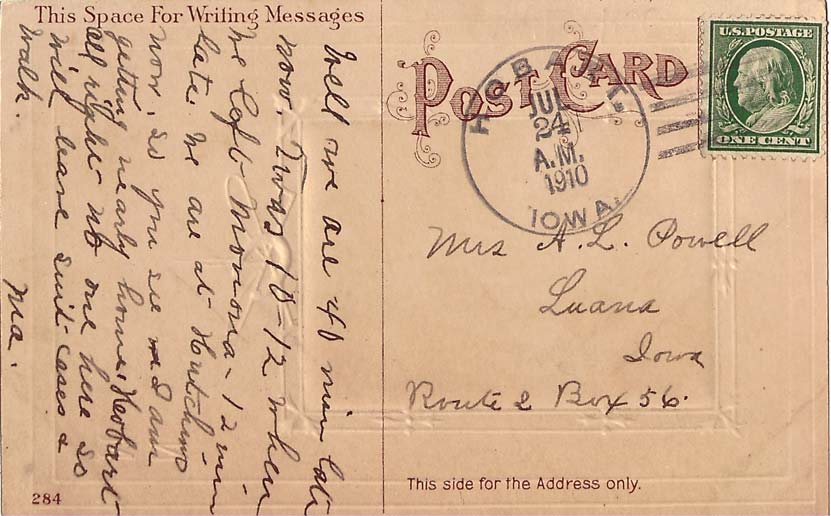 This Space For Writing Messages
Well we are 40 min late
now. Twas 10-12 when
we left Monona - 12 min
late. We are at Hutchins
now, so you see
getting nearly home. Hobart
all right no one here so
will leave suit cases &
walk.
Ma.
284
POST CARD
HOBART.
JUL
24
A.M.
1910
IOWA.
U.S. POSTAGE
ONE CENT
Mrs A. L. Powell
Luana
Iowa
Route 2 Box 56.
This side for the Address only.